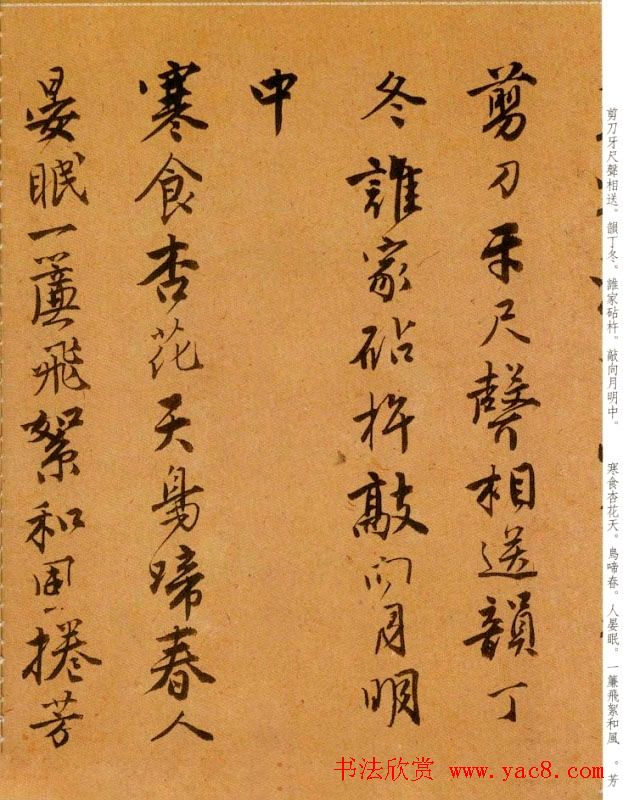 剪刀牙尺聲相送韻丁
冬誰家砧杵敲向月明
中
寒食杏花天鳥啼春人
晏眠一簾飛絮和風捲芳
剪刀牙尺聲相送。韻丁冬。誰家砧杵。敲向月明中。
寒食杏花天。鳥啼春。人晏眠。一簾飛絮和風。芳
书法欣赏 www.yac8.com